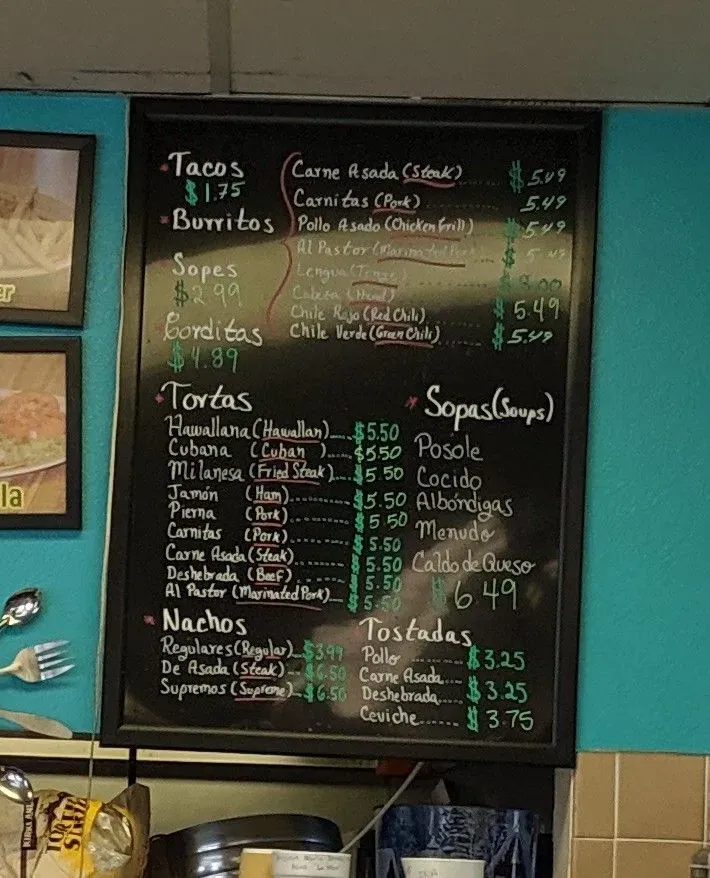 Tacos
$1.75
Burritos
Sopes
$2.99
Gorditas
$4.89
Carne Asada (Steak) $5.49
Carnitas (Pork) 5.49
Pollo Asado (Chicken Grill) $5.49
Al Pastor (Marinated Pork) $5.49
Lengua (Tongue)
Cabeza (Head)
Chile Rojo (Red Chili) $5.49
Chile Verde (Green Chili) $5.49
Tortas
Hawallana (Hawallan) $5.50
Cubana (Cuban) $5.50
Milanesa (Fried Steak) $5.50
Jamón (Ham) $5.50
Pierna (Pork) $5.50
Carnitas (Pork) $5.50
Carne Asada (Steak) $5.50
Deshebrada (Beef) $5.50
Al Pastor (Marinated Pork) $5.50
Sopas (Soups)
Posole
Cocido
Albóndigas
Menudo
Caldo de Queso
$6.49
Nachos
Regulares (Regular) $3.99
De Asada (Steak) $6.50
Supremos (Supreme) $6.50
Tostadas
Pollo $3.25
Carne Asada
Deshebrada $3.25
Ceviche $3.75
er
la